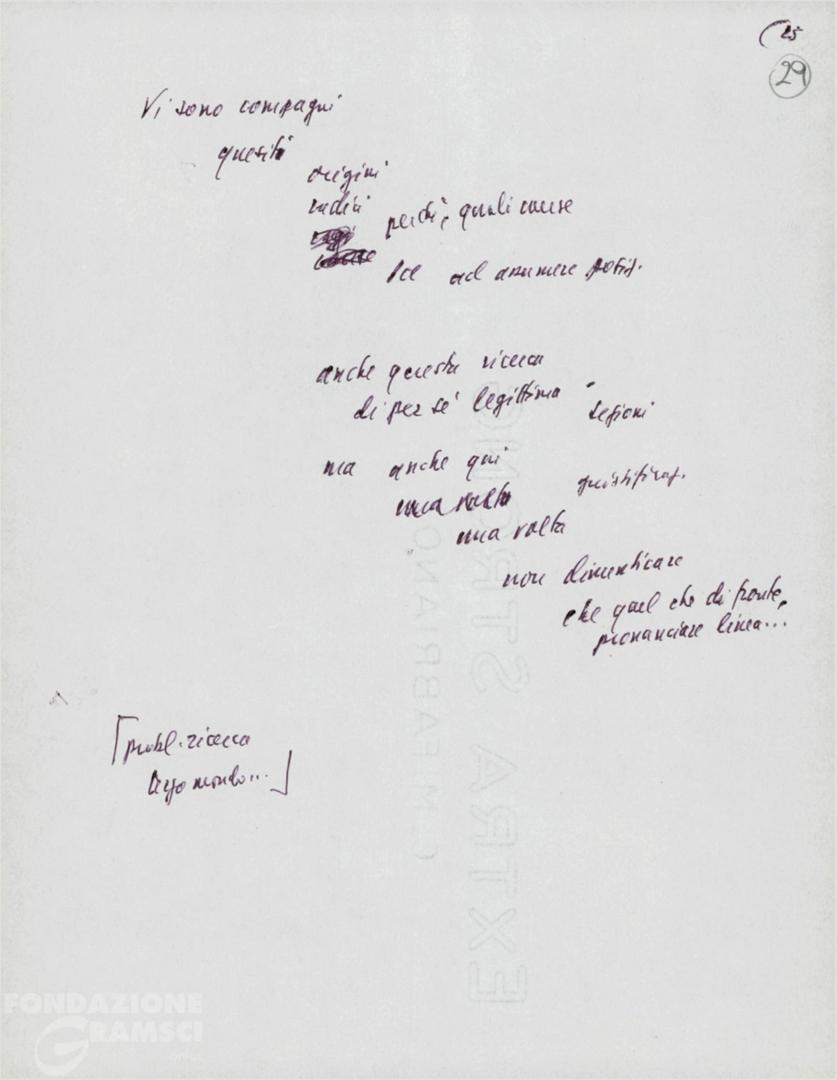 25
29
Vi sono compagni
quesiti
origini
radici
perché, quali cause
ad assumere posiz.
anche questa ricerca
di per sé legittima
ma anche qui
una volta
giustificaz.
una volta
non dimenticare
che quel che di fronte,
pronunciare linea...
[probl. ricerca
terzo mondo...]
C. M. FABRIANO
EXTRA STRONG
FONDAZIONE
GRAMSCI